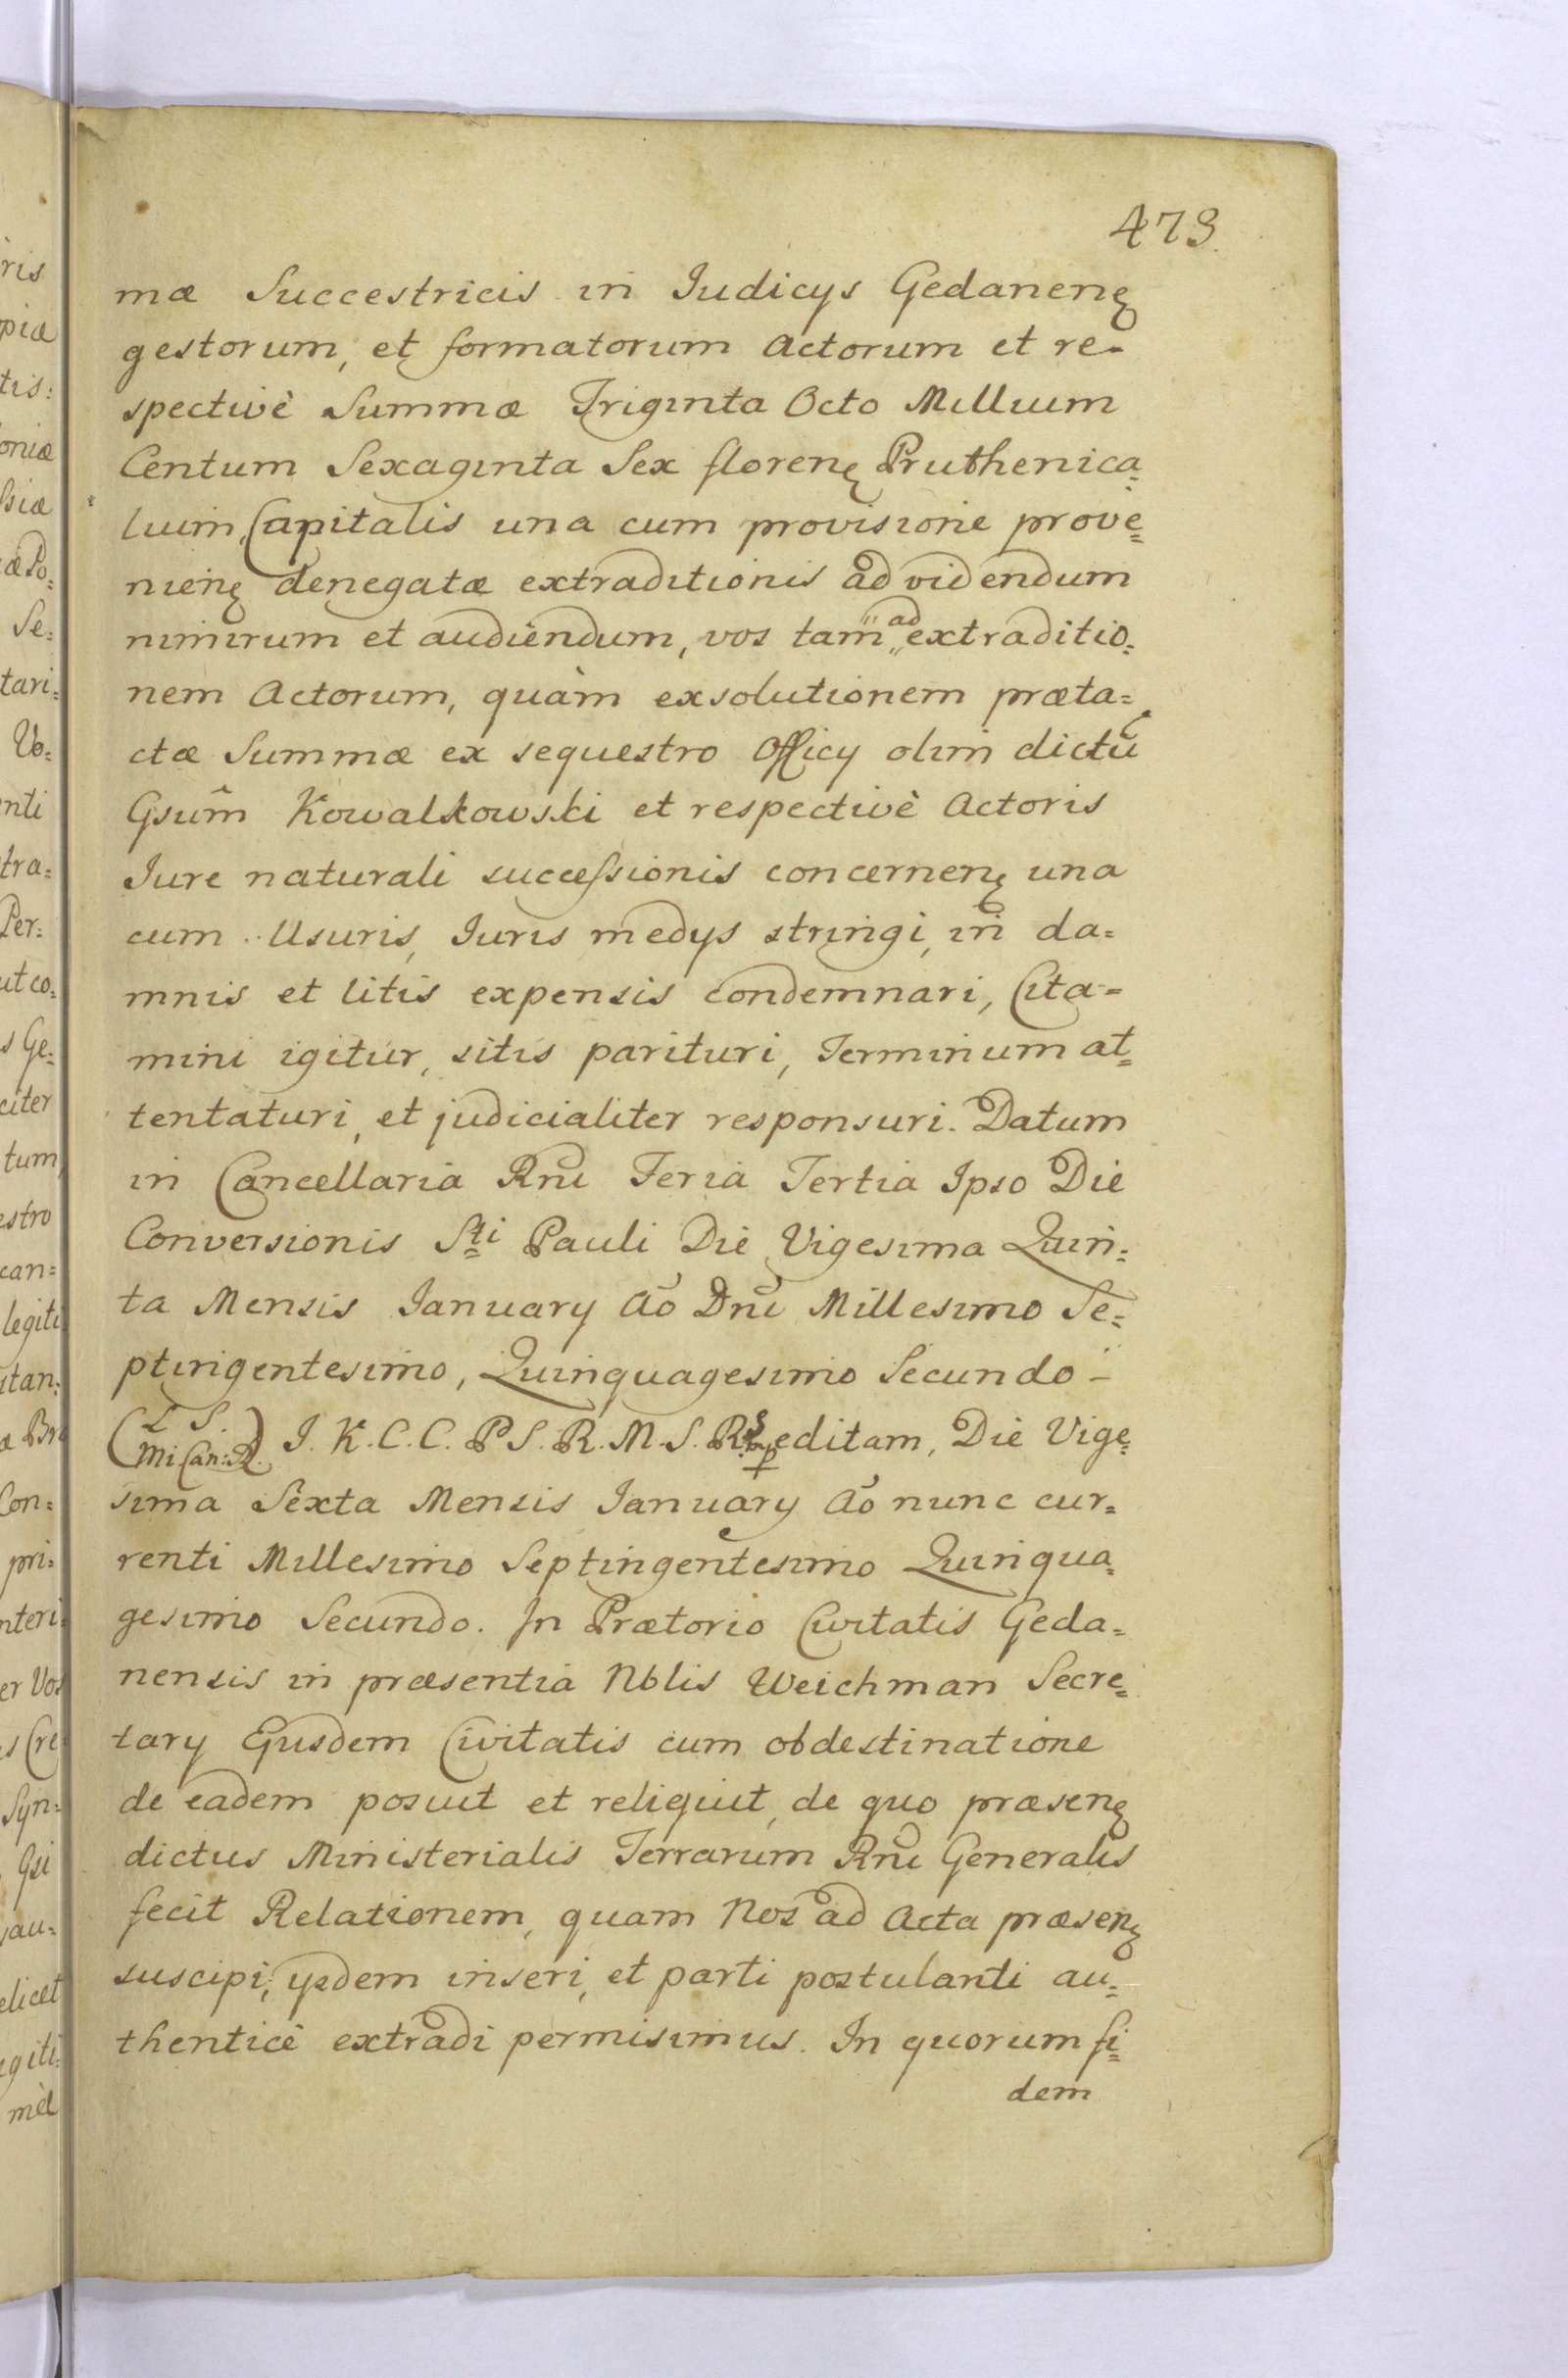 473.
mæ Successtricis in Judicys Gedanenȩ
gestorum, et formatorum Actorum et re-
spectivè Summæ Triginta Octo Millium
Centum Sexaginta Sex florenȩ Pruthenica=
lium, Capitalis una cum provisione prove=
nienȩ denegatæ extraditionis ad videndum
nimirum et audiendum, vos tam ad extraditio=
nem Actorum, quàm exsolutionem præta=
ctæ Summæ ex sequestro Officy olim dictũ
Gsum̃ Kowalkowski et respectivè Actoris
Jure naturali successionis concernenȩ una
cum Usuris, Juris medys stringi, in da=
mnis et litis expensis condemnari, Cita=
mini igitur, sitis parituri, Terminum at=
tentaturi, et judicialiter responsuri. Datum
in Cancellaria Rnĩ Feria Tertia Ipso Die
Conversionis Sti Pauli Die Vigesima Quin=
ta Mensis January Aõ Dnĩ Millesimo Se=
ptingentesimo, Quinquagesimo Secundo -
(L S. Mi Can: R.) J. K. C. C. P S. R. M. S. editam, Die Vige=
sima Sexta Mensis January Aõ nunc cur=
renti Millesimo Septingentesimo Quinqua=
gesimo Secundo. In Prætorio Civitatis Geda=
nensis in præsentia Nblis Weichman Secre=
tary Ejusdem Civitatis cum obdestinatione
de eadem posuit et reliquit, de quo præsenȩ
dictus Ministerialis Terrarum Rnĩ Generalis
fecit Relationem, quam Nos ad Acta præsenȩ
suscipi, ysdem inseri, et parti postulanti au=
thenticè extradi permisimus. In quorum fi=
dem